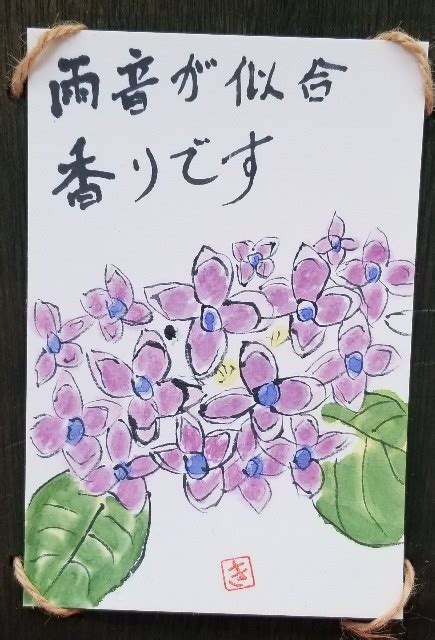 雨音が似合
香りです
き